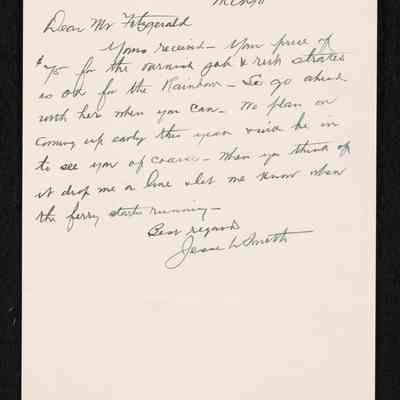 Dear Mr Fitzgerald
Yours received - Your price of
$ for the varnish job & rub strakes
is ok for the Rainbow - So go ahead
with her when you can - We plan on
coming up early this year & will be in
to see you of course - When you think of
it drop me a line & let me know when
the ferry starts running -
Best regards
Jesse W Smith